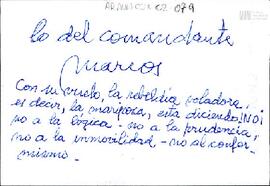 lo del comandante
Marcos
Con su vuelo, la rebeldía voladora,
es decir, la mariposa, esta diciendo ¡NO!
no a la lógica - no a la prudencia,
no a la inmovilidad - no al confor-
mismo -